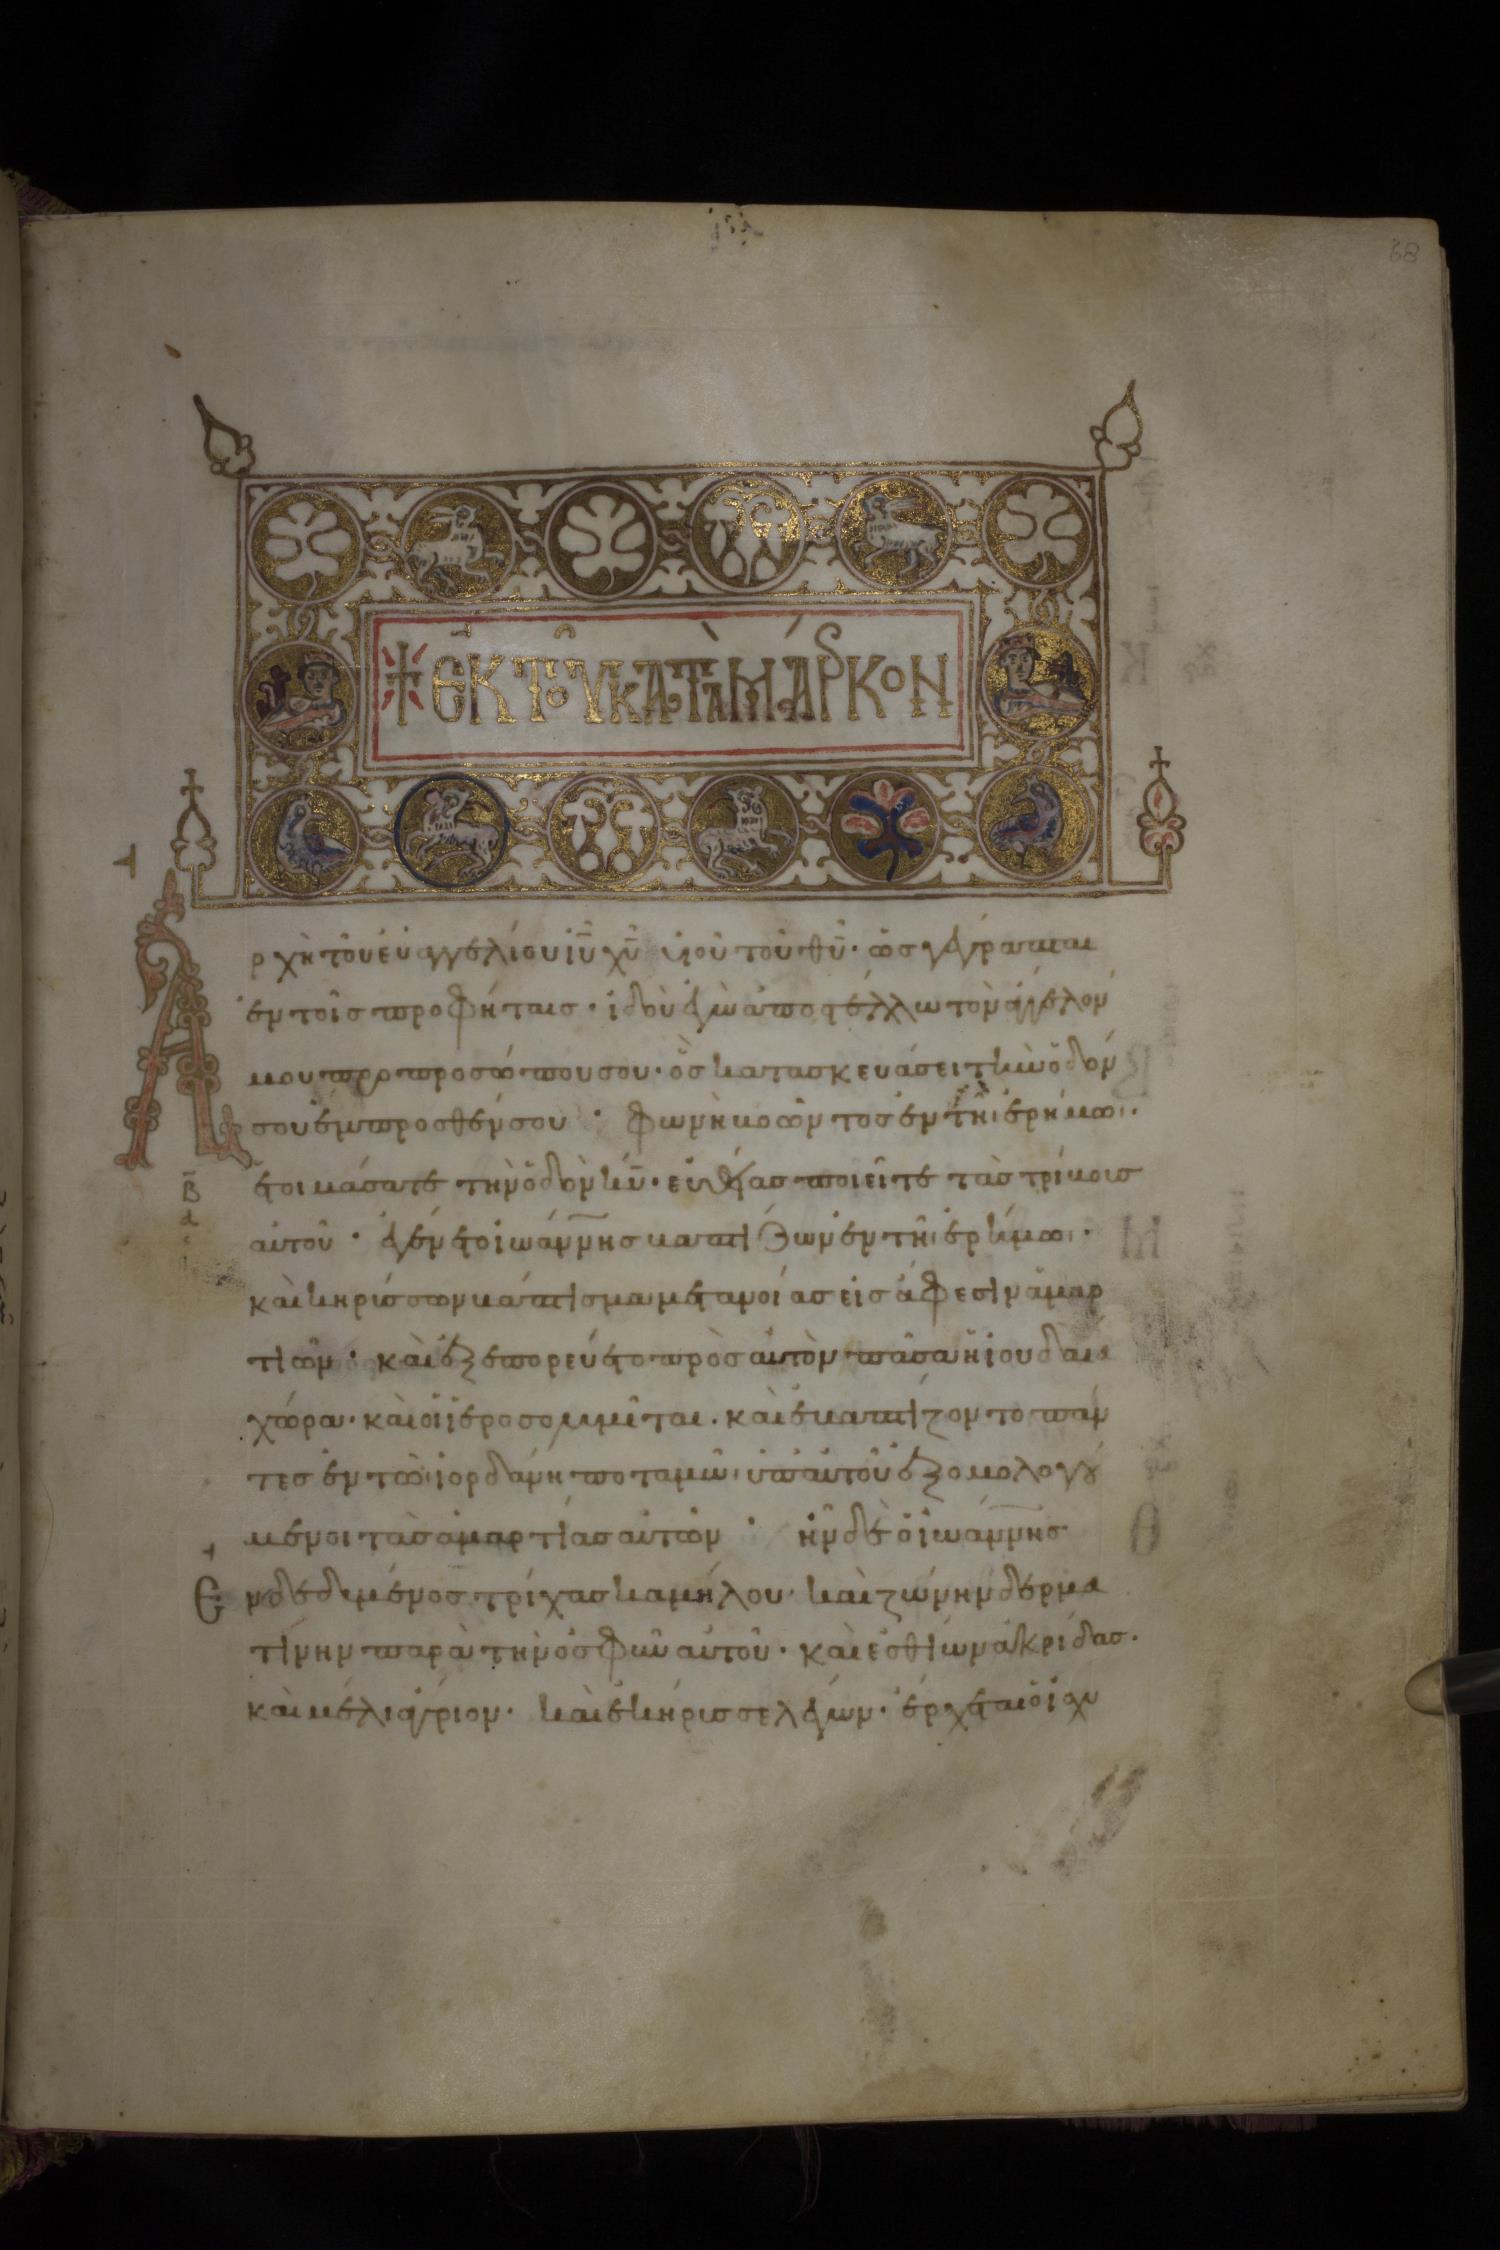 68
ἘΚ ΤΟΥ ΚΑΤᾺ ΜΆΡΚΟΝ
Αρχὴ τοῦ εὐαγγελίου ἰῦ χῦ υἱοῦ τοῦ θῦ· ὡς γέγραπται
ἐν τοῖς προφήταις· ἰδοὺ ἐγὼ ἀποστέλλω τὸν ἄγγελόν
μου πρὸ προσώπου σου· ὃς κατασκευάσει τὴν ὁδόν
σου ἔμπροσθέν σου· φωνὴ βοῶντος ἐν τῆι ἐρήμωι·
ἑτοιμάσατε τὴν ὁδὸν κῦ· εὐθείας ποιεῖτε τὰς τρίβους
αὐτοῦ· ἐγένετο ἰωάννης βαπτίζων ἐν τῆι ἐρήμωι·
καὶ κηρύσσων βάπτισμα μετανοίας εἰς ἄφεσιν ἁμαρ
τιῶν· καὶ ἐξεπορεύετο πρὸς αὐτὸν πᾶσα ἡ ἰουδαία
χώρα· καὶ οἱ ἱεροσολυμῖται· καὶ ἐβαπτίζοντο πάν
τες ἐν τῶι ἰορδάνη ποταμῶι ὑπ' αὐτοῦ ἐξομολογού
μενοι τὰς ἁμαρτίας αὐτῶν· ἦν δὲ ὁ ἰωάννης
Ενδεδυμένος τρίχας καμήλου· καὶ ζώνην δερμα
τίνην παρὰ τὴν ὀσφῦν αὐτοῦ· καὶ ἐσθίων ἀκρίδας·
καὶ μέλι ἄγριον· καὶ ἐκήρυσσε λέγων· ἔρχεται ὁ ἰσχυ